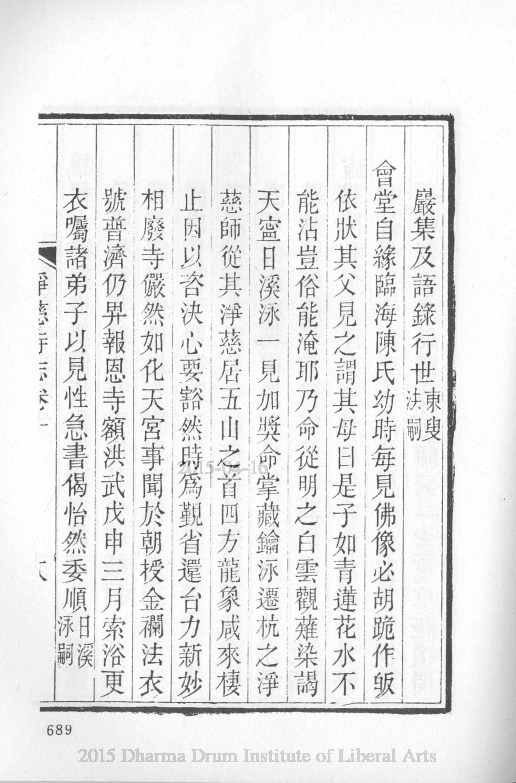 巖集及語錄行世東叟洪嗣
會堂自緣臨海陳氏幼時每見佛像必胡跪作皈
依狀其父見之謂其母曰是子如青蓮花水不
能沾豈俗能淹耶乃命從明之白雲觀薙染謁
天寧日溪泳一見加獎命掌藏鑰泳遷杭之淨
慈師從其淨慈居五山之首四方龍象咸來棲
止因以咨決心要豁然時為覲省還台力新妙
相廢寺儼然如化天宮事聞於朝授金襴法衣
號普濟仍昇報恩寺額洪武戊申三月索浴更
衣囑諸弟子以見性急書偈怡然委順日溪泳嗣
淨慈寺志卷
689
2015-04-16
2015 Dharma Drum Institute of Liberal Arts